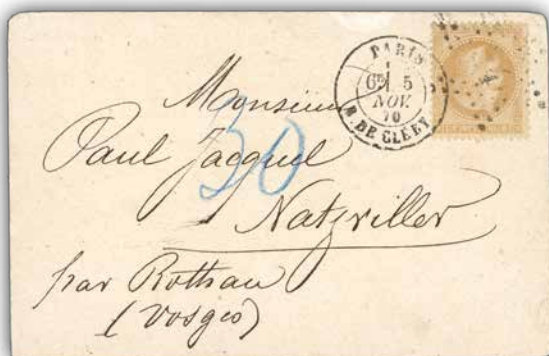 PARIS
6E 5
NOV.
70
R. DE CLÉRY
Monsieur
30
Paul Jacquel
Natzviller
par Rothau
(Vosges)